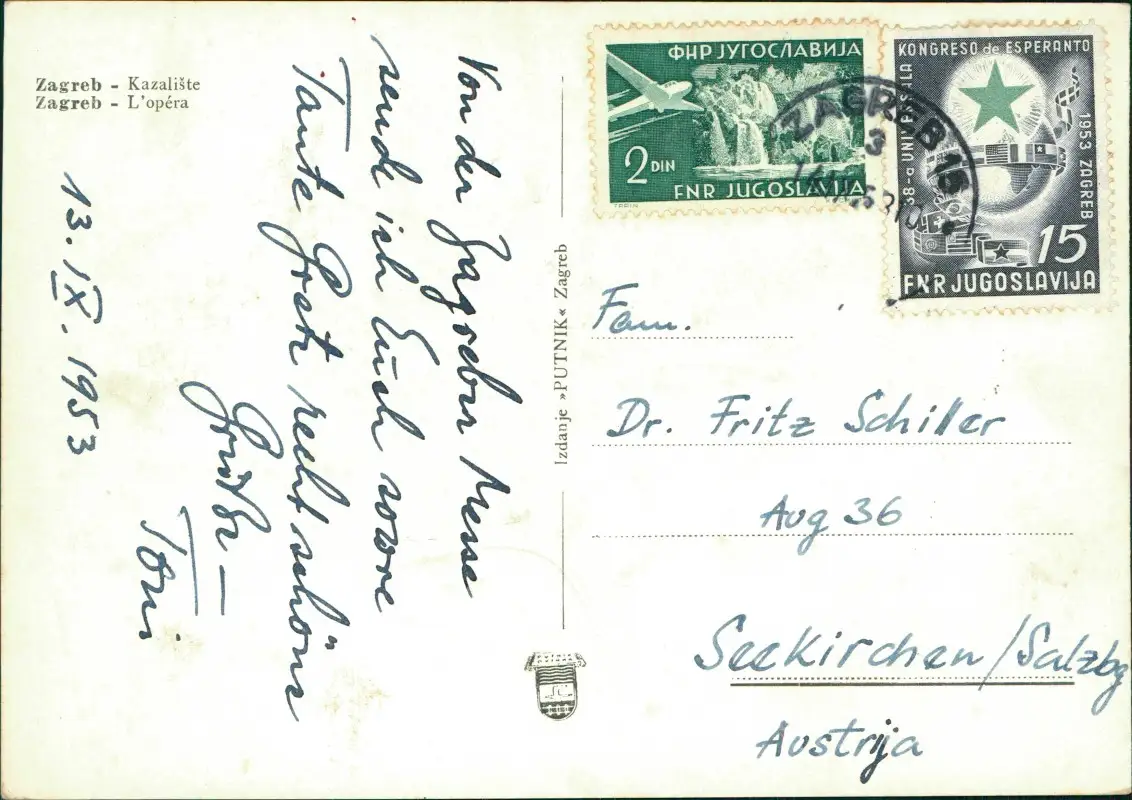 Zagreb - Kazalište
Zagreb - L'opéra
Von der Zagreber Messe
sende ich Euch sowie
Tante Grete recht schöne
Grüße –
Toni
13. IX. 1953
Izdanje »PUTNIK« Zagreb
ФНР ЈУГОСЛАВИЈА
2 DIN
FNR JUGOSLAVIJA
38-a UNIVERSALA KONGRESO de ESPERANTO
1953 ZAGREB
15
FNR JUGOSLAVIJA
ZAGREB 15
3
Fam.
Dr. Fritz Schiller
Aug 36
Seekirchen/Salzbg
Austrija